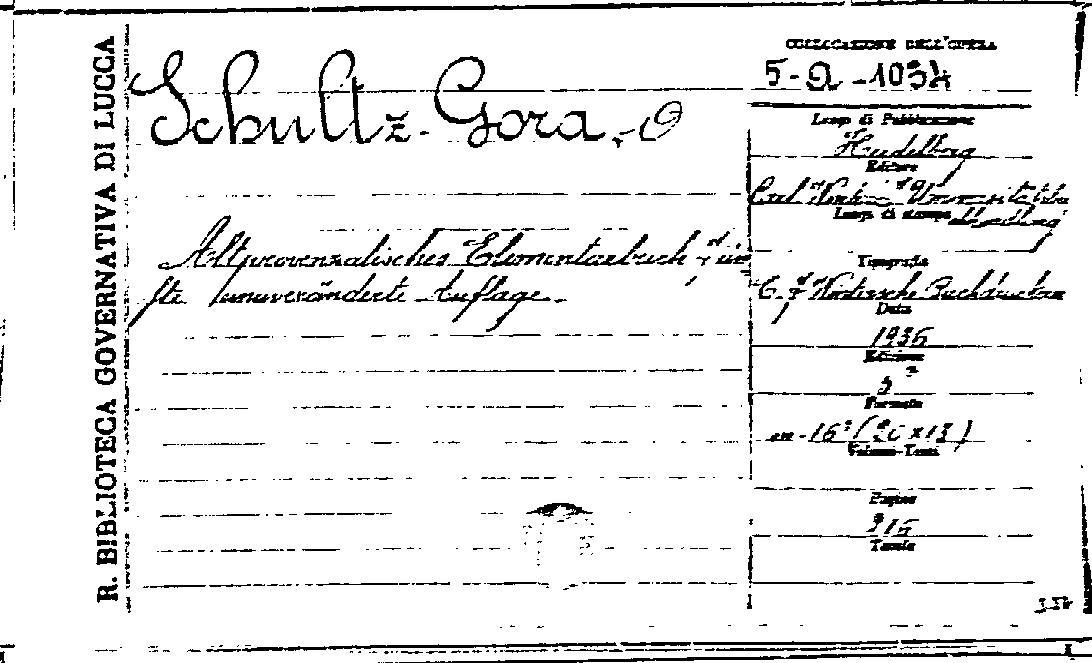 R. BIBLIOTECA GOVERNATIVA DI LUCCA
Schultz-Gora, O
Altprovenzalisches Elementarbuch, fün
fte unveränderte Auflage.
COLLOCAZIONE DELL'OPERA
5-Q-1034
Luogo di Pubblicazione
Heidelberg
Editore
Carl Winters Universitätsbu
Luogo di stampa Heidelberg
Tipografia
C. F. Wintersche Buchdruckerei
Data
1936
Edizione
5ª
Formato
in-16° (20x13)
Volume-Tomi
Pagine
Tavole